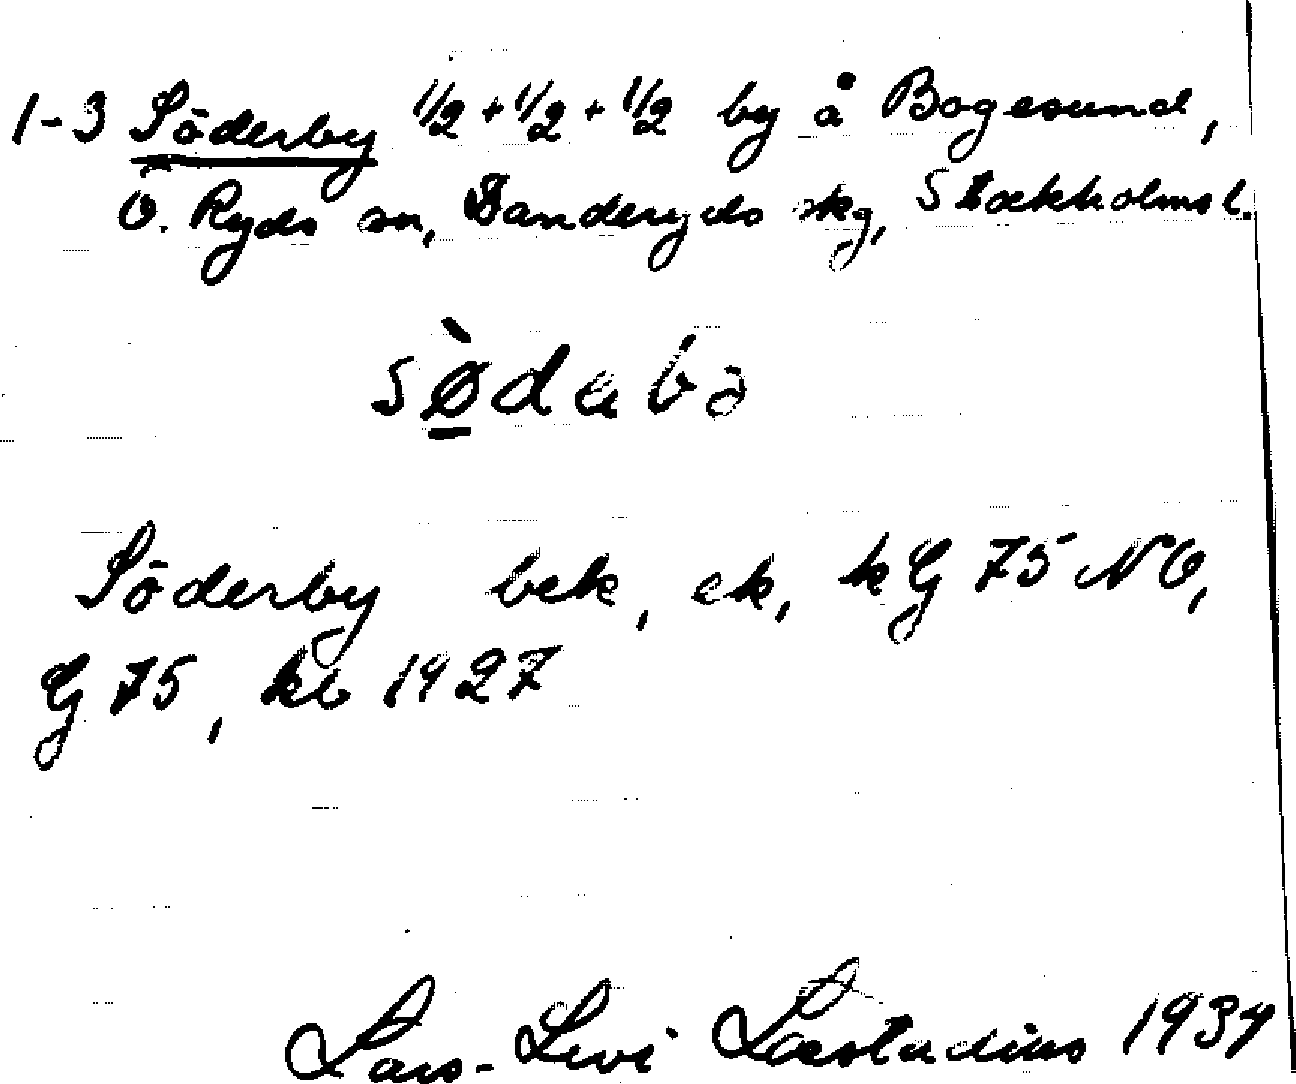 1-3 Söderby 1/2 + 1/2 + 1/2 by å Bogesund,
Ö. Ryds sn, Danderyds skg, Stockholms l.
Söderby bek, ek, k G 75 NO,
G 75, kb 1927
Lars-Levi Læstadius 1934